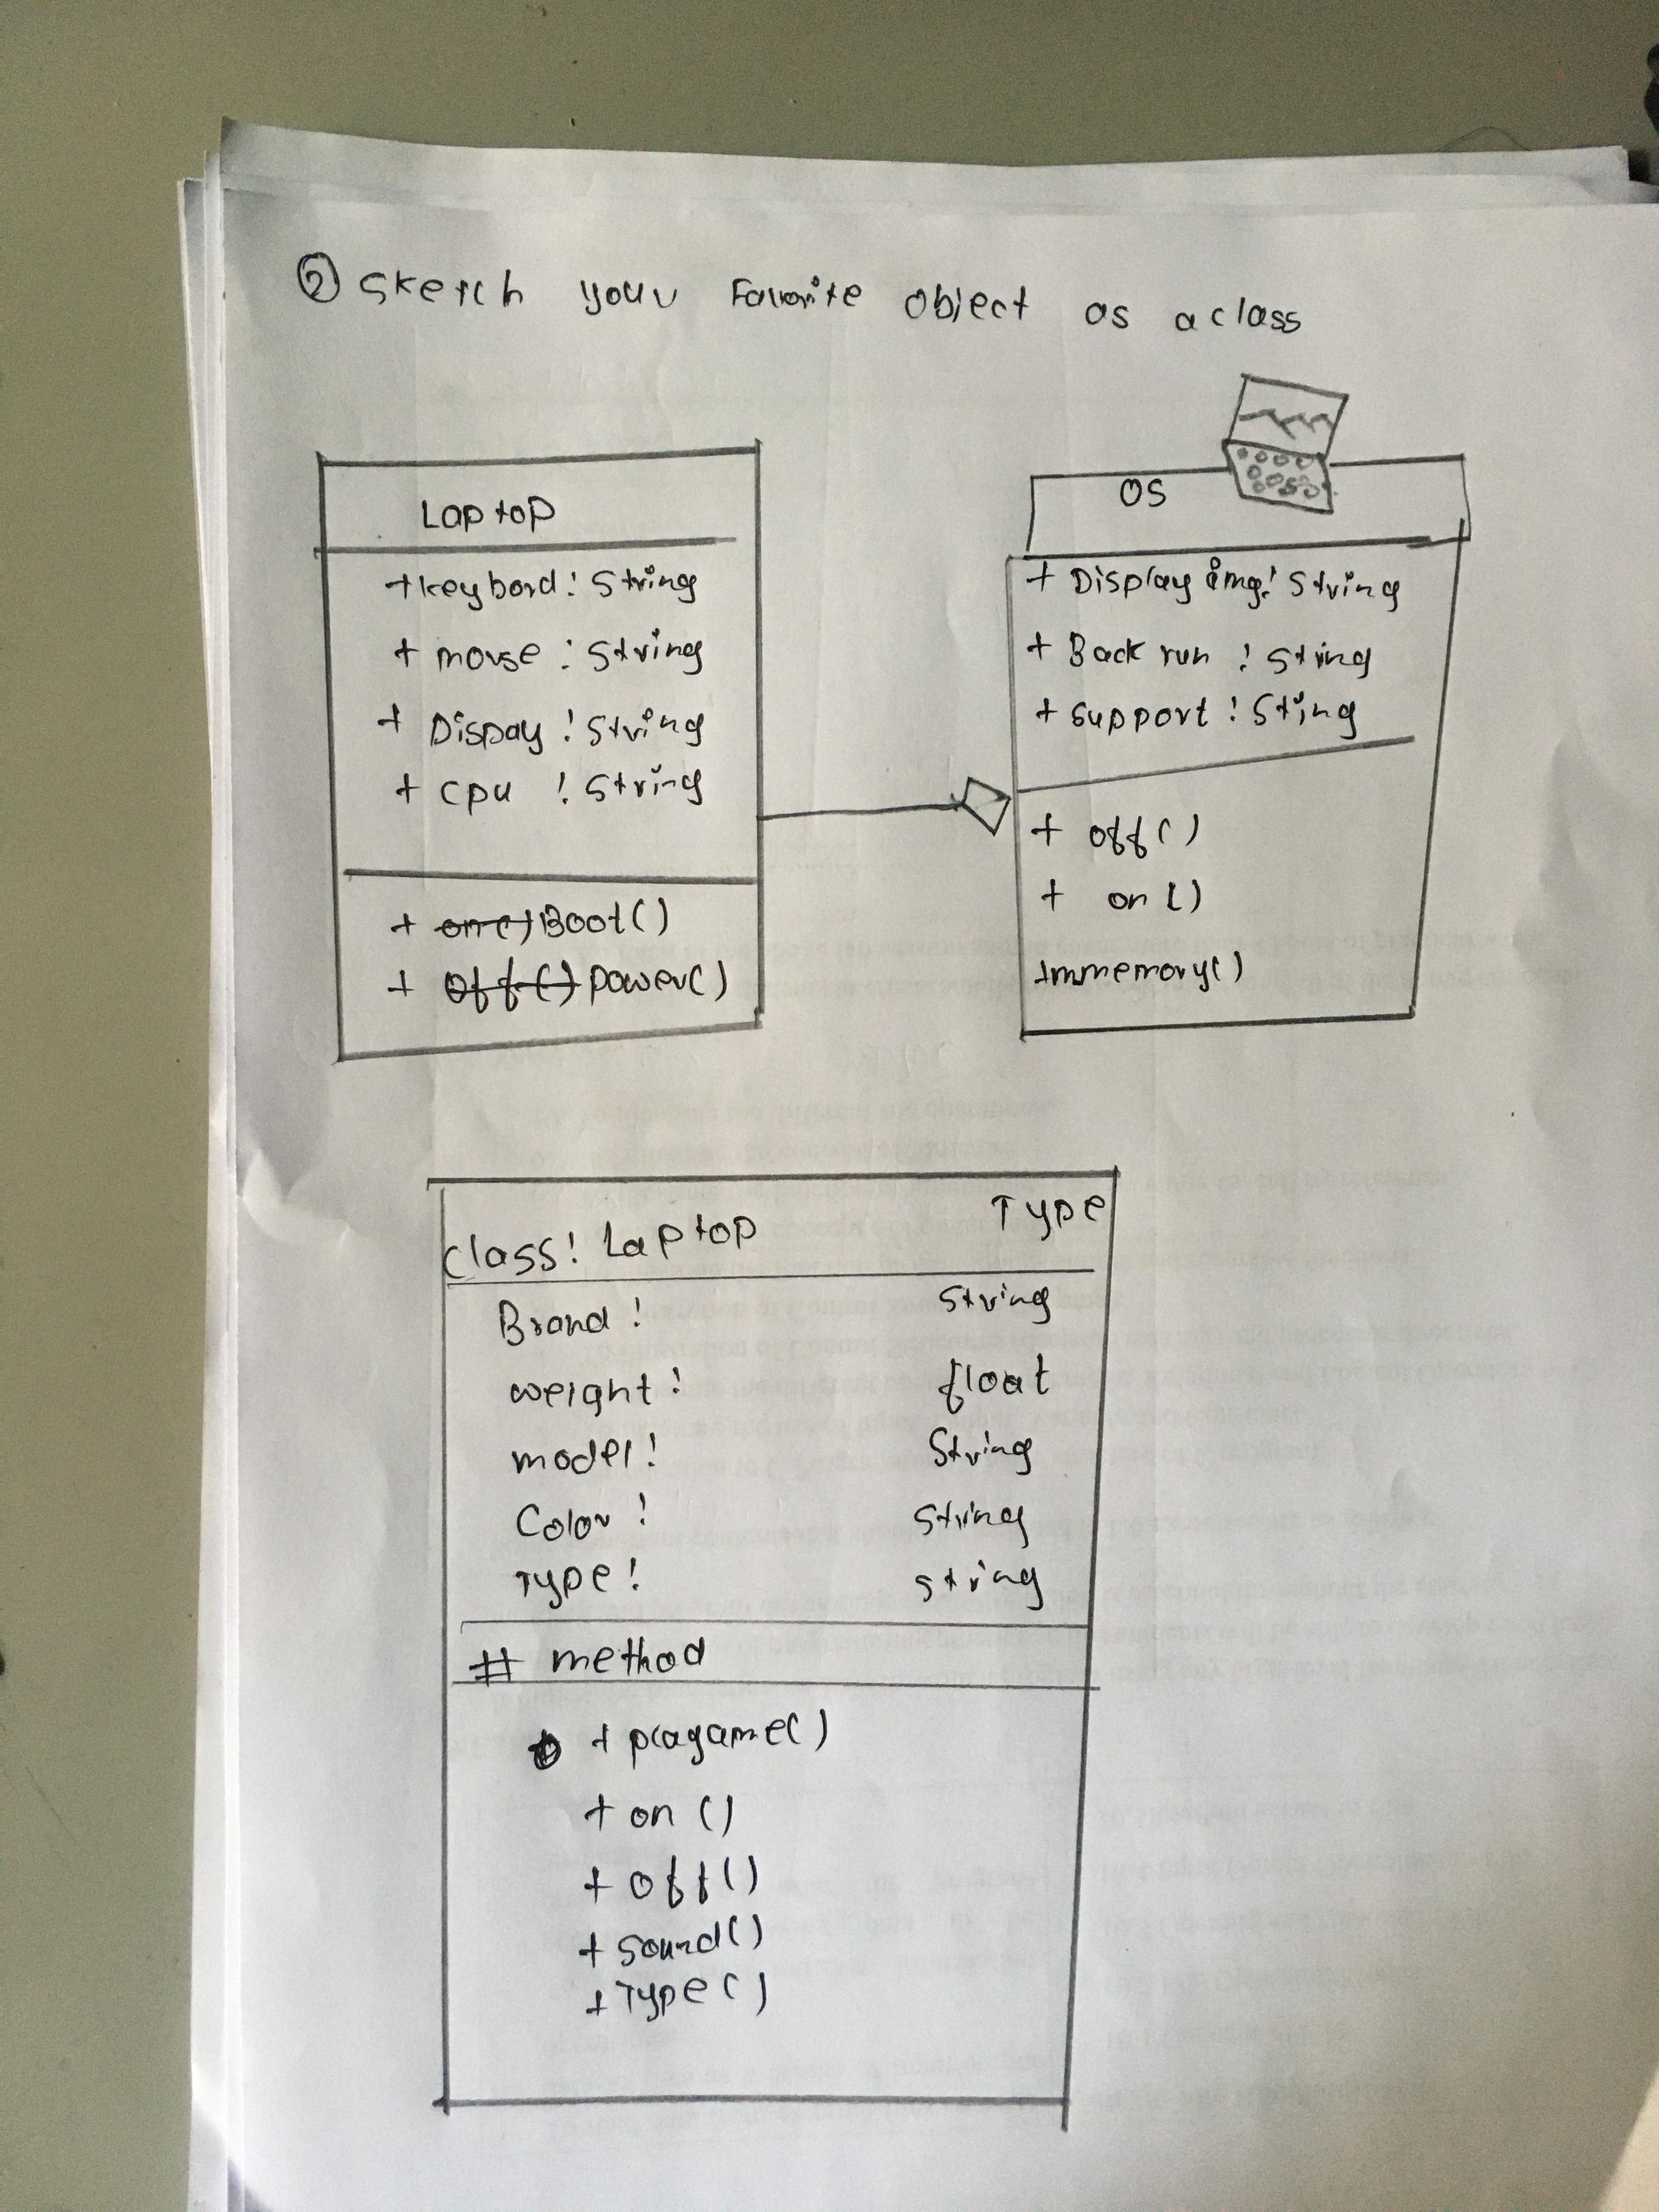 ② Sketch your Favorite object as a class
Laptop
+keybord: String
+ mouse : String
+ Dispay : String
+ cpu : String
+ on() Boot()
+ off() power()
OS
+ Display img: String
+ Back run : String
+ support : Sting
+ off()
+ on()
+mmemory()
class: Laptop Type
Brand : String
weight : float
model : String
Color : String
Type : string
# method
+ playgame()
+ on ()
+ off()
+ sound()
+ Type()